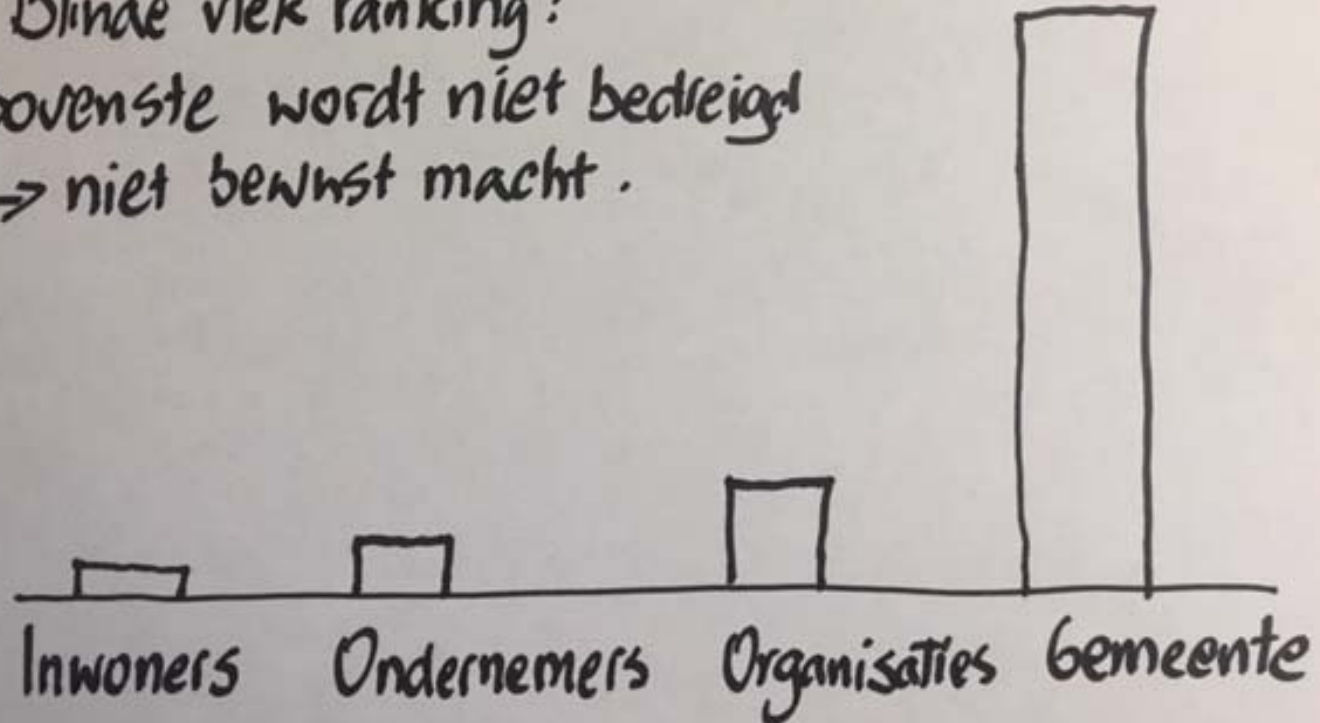 Blinde vlek ranking:
bovenste wordt niet bedreigd
-> niet bewust macht.
Inwoners Ondernemers Organisaties Gemeente